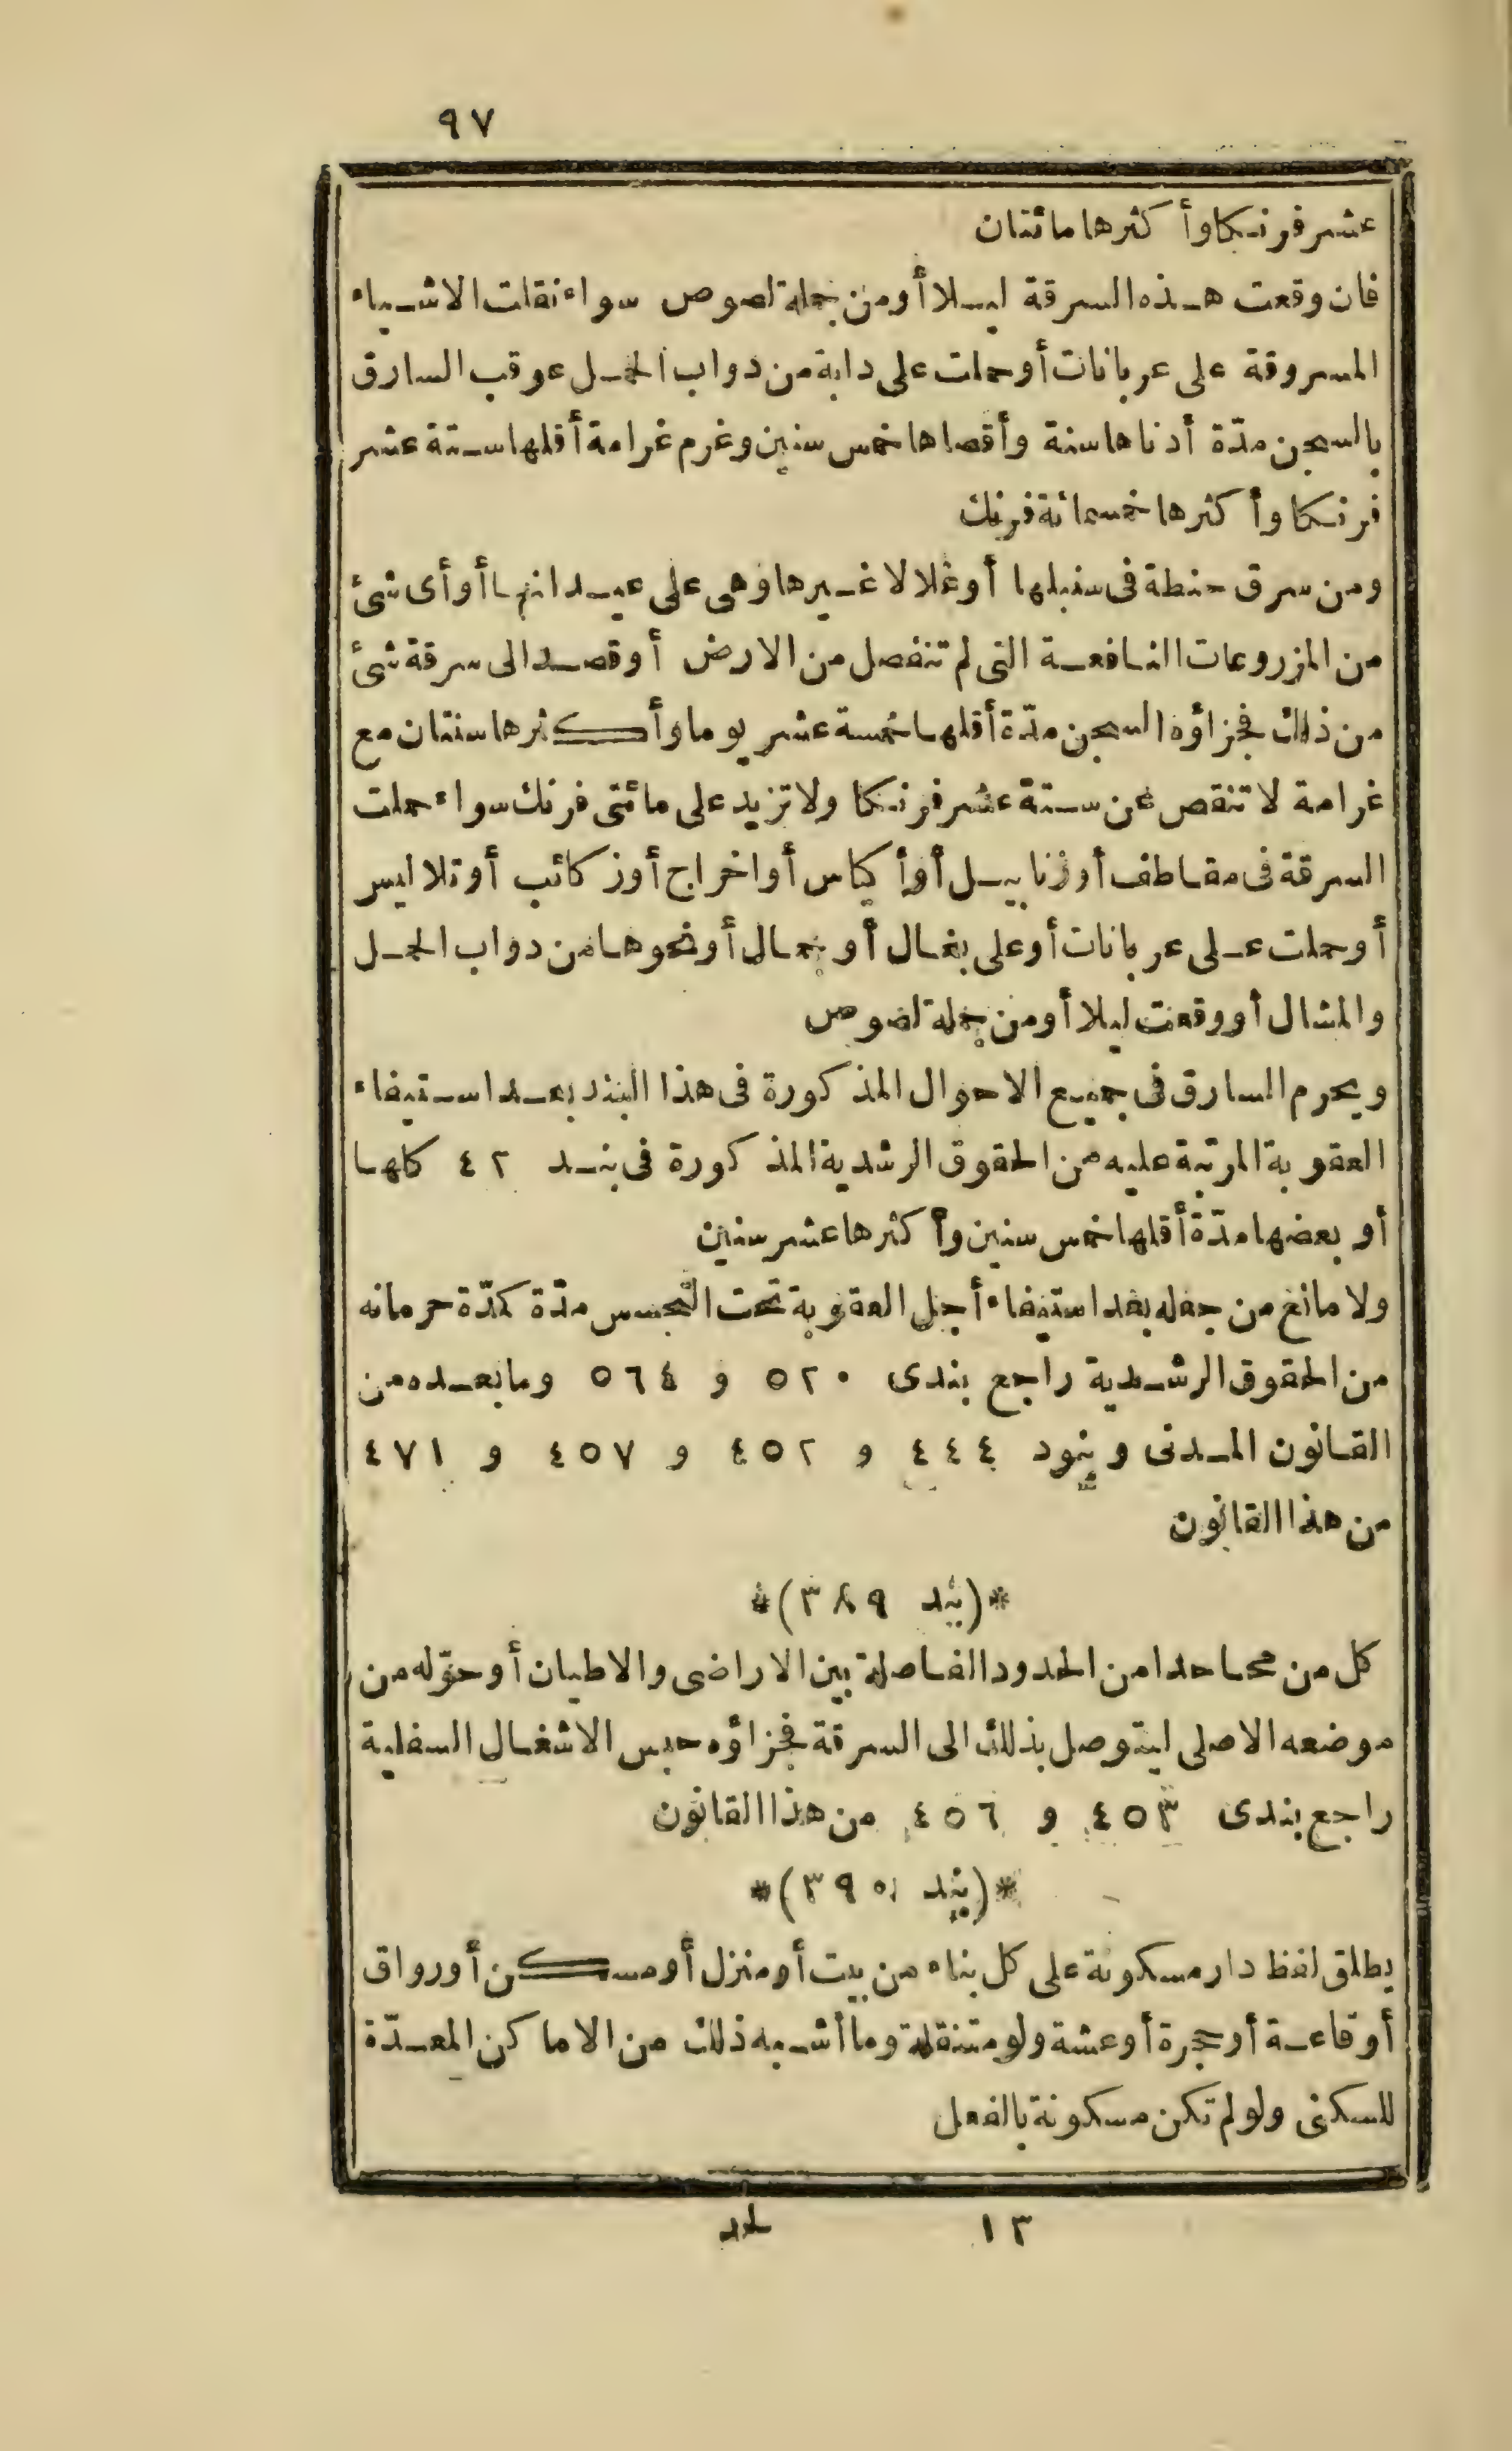 ٩٧
عشر فرنكا وأكثرها مائتان
فان وقعت هذه السرقة ليلا أو من جملة لصوص سواء نقلت الاشياء
المسروقة على عربانات أو حملت على دابة من دواب الحمل عوقب السارق
بالسجن مدّة أدناها سنة وأقصاها خمس سنين وغرم غرامة أقلها ستة عشر
فرنكا وأكثرها خمسمائة فرنك
ومن سرق حنطة فى سنبلها أو غلالا غيرها وهى على عيدانها أو أى شئ
من المزروعات النافعة التى لم تنفصل من الارض أو قصد الى سرقة شئ
من ذلك فجزاؤه السجن مدّة أقلها خمسة عشر يوما وأكثرها سنتان مع
غرامة لا تنقص عن ستة عشر فرنكا ولا تزيد على مائتى فرنك سواء حملت
السرقة فى مقاطف أو زنابيل أو أكياس أو اخراج أو زكائب أو تلاليس
أو حملت على عربانات أو على بغال أو جمال أو نحوها من دواب الحمل
والمشال أو وقعت ليلا أو من جملة لصوص
ويحرم السارق فى جميع الاحوال المذكورة فى هذا البند بعد استيفاء
العقوبة المرتبة عليه من الحقوق الرشدية المذكورة فى بند ٤٢ كلها
أو بعضها مدّة أقلها خمس سنين وأكثرها عشر سنين
ولا مانع من جعله بعد استيفاء أجل العقوبة تحت التجسس مدّة كمدّة حرمانه
من الحقوق الرشدية راجع بندى ٥٢٠ و ٥٦٤ وما بعده من
القانون المدنى وبنود ٤٤٤ و ٤٥٢ و ٤٥٧ و ٤٧١
من هذا القانون
*(بند ٣٨٩)*
كل من محا حدا من الحدود الفاصلة بين الاراضى والاطيان أو حوّله من
موضعه الاصلى ليتوصل بذلك الى السرقة فجزاؤه حبس الاشغال السفلية
راجع بندى ٤٥٣ و ٤٥٦ من هذا القانون
*(بند ٣٩٠)*
يطلق لفظ دار مسكونة على كل بناء من بيت أو منزل أو مسكن أو رواق
أو قاعة أو حجرة أو عشة ولو متنقلة وما أشبه ذلك من الاماكن المعدّة
للسكنى ولو لم تكن مسكونة بالفعل
١٣